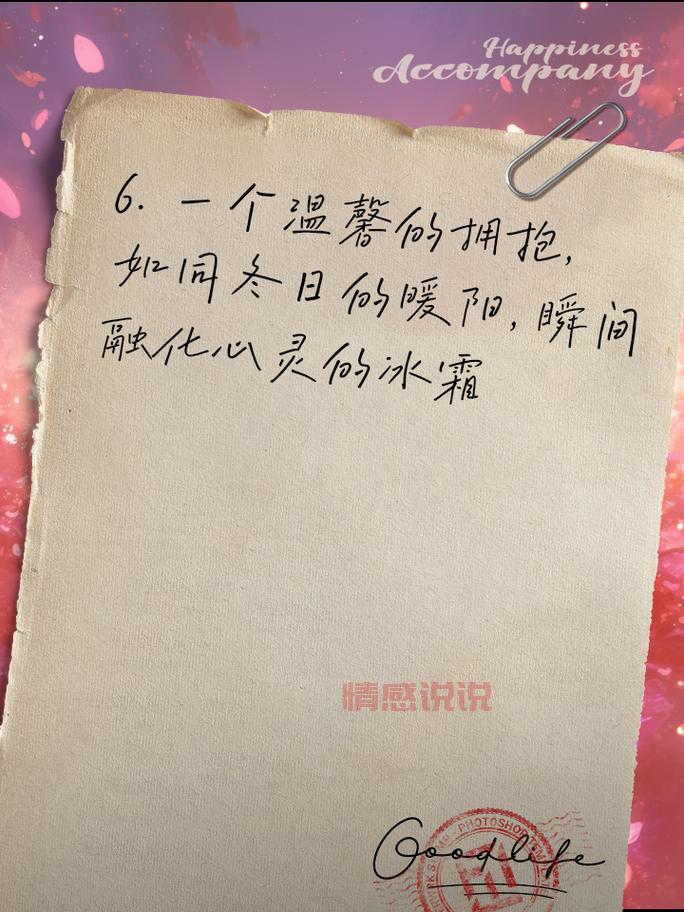 Happiness
Accompany
6. 一个温馨的拥抱,
如同冬日的暖阳,瞬间
融化心灵的冰霜
情感说说
PHOTOSHOP
Goodlife